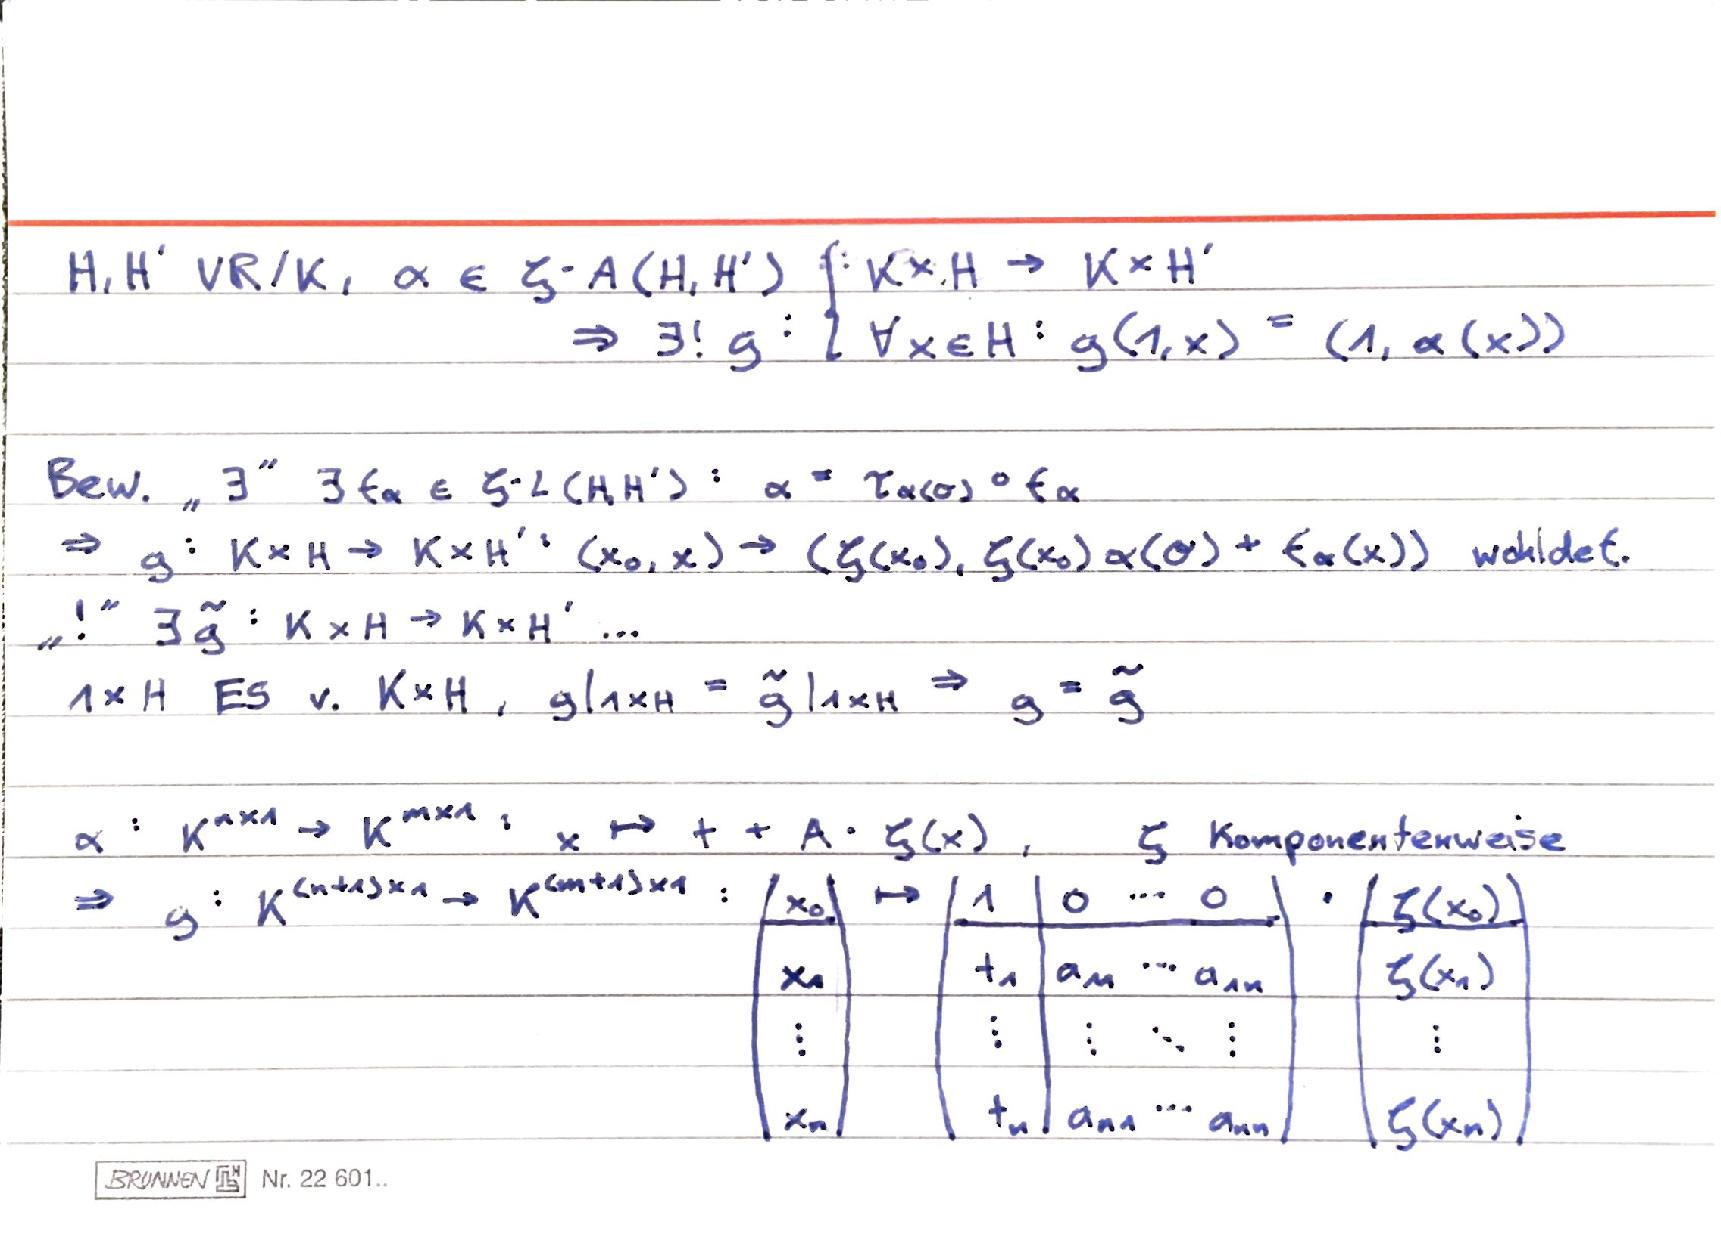 H, H' VR/K, α ∈ ζ-A(H, H') { : K × H → K × H'
⇒ ∃! g : { ∀ x ∈ H : g(1, x) = (1, α(x))
Bew. „∃" ∃ f_α ∈ ζ-L(H, H') : α = τ_α(o) ∘ f_α
⇒ g : K × H → K × H' : (x₀, x) → (ζ(x₀), ζ(x₀) α(o) + f_α(x)) wohldef.
„!" ∃ g̃ : K × H → K × H' ...
1 × H ES v. K × H, g|1×H = g̃|1×H ⇒ g = g̃
α : K^{n×1} → K^{m×1} : x ↦ t + A · ζ(x), ζ Komponentenweise
⇒ g : K^{(n+1)×1} → K^{(m+1)×1} : (x₀) ↦ (1 | 0 ... 0) · (ζ(x₀))
x₁ t₁ | a₁₁ ... a₁ₙ ζ(x₁)
⋮ ⋮ | ⋮ ⋱ ⋮ ⋮
xₙ tₙ | aₙ₁ ... aₙₙ ζ(xₙ)
BRUNNEN Nr. 22 601..